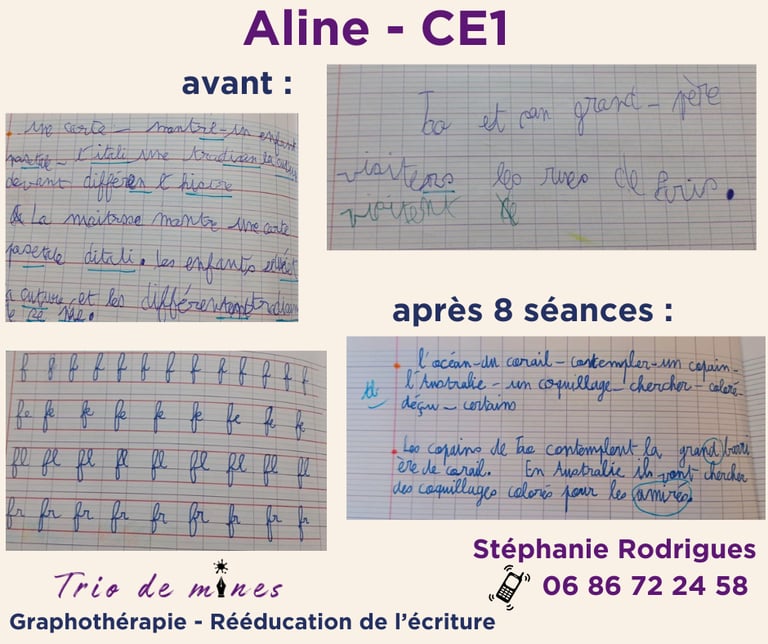 Aline - CE1
avant :
une carte - montre - un enfant
pastale - l'itali une tradisan la cuture
devant différen l'hisoire
La maitrose montre une carte
pasetale ditali. les enfants
cuture et les différent
Tao et son grand-père
visitens les rues de Paris.
visitent
après 8 séances :
f f f f f f f f f f f f
fe fe fe fe fe fe fe fe fe
fl fl fl fl fl fl fl fl fl
fr fr fr fr fr fr fr fr fr
l'océan - du corail - contempler - un copain -
l'Australie - un coquillage - chercher - coloré -
déçu - certains
Les copains de Tao contemplent la grand barri
ère de corail. En Australie ils vont chercher
des coquillages colorés pour les amires
Stéphanie Rodrigues
06 86 72 24 58
Trio de mines
Graphothérapie - Rééducation de l'écriture